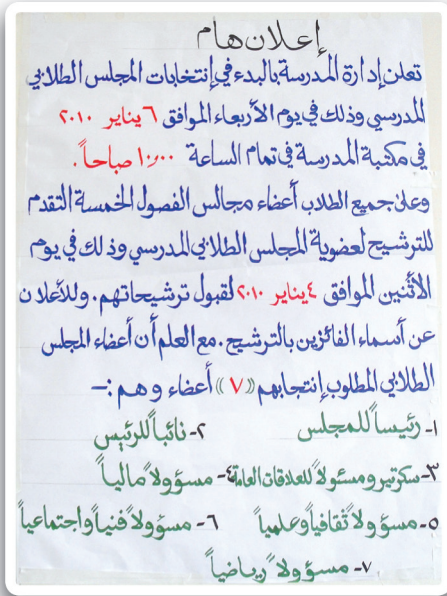 إعلان هام
تعلن إدارة المدرسة بالبدء في إنتخابات المجلس الطلابي
المدرسي وذلك في يوم الأربعاء الموافق ٦ يناير ٢٠١٠
في مكتبة المدرسة في تمام الساعة ١٠,٠٠ صباحاً.
وعلى جميع الطلاب أعضاء مجالس الفصول الخمسة التقدم
للترشيح لعضوية المجلس الطلابي المدرسي وذلك في يوم
الأثنين الموافق ٤ يناير ٢٠١٠ لقبول ترشيحاتهم. وللأعلان
عن أسماء الفائزين بالترشيح. مع العلم أن أعضاء المجلس
الطلابي المطلوب إنتجابهم ((٧)) أعضاء وهم:-
١- رئيساً للمجلس ٢- نائباً للرئيس
٣- سكرتير ومسئولاً للعلاقات العامة ٤- مسؤولاً مالياً
٥- مسؤولاً ثقافياً وعلمياً ٦- مسؤولاً فنياً واجتماعياً
٧- مسؤولاً رياضياً